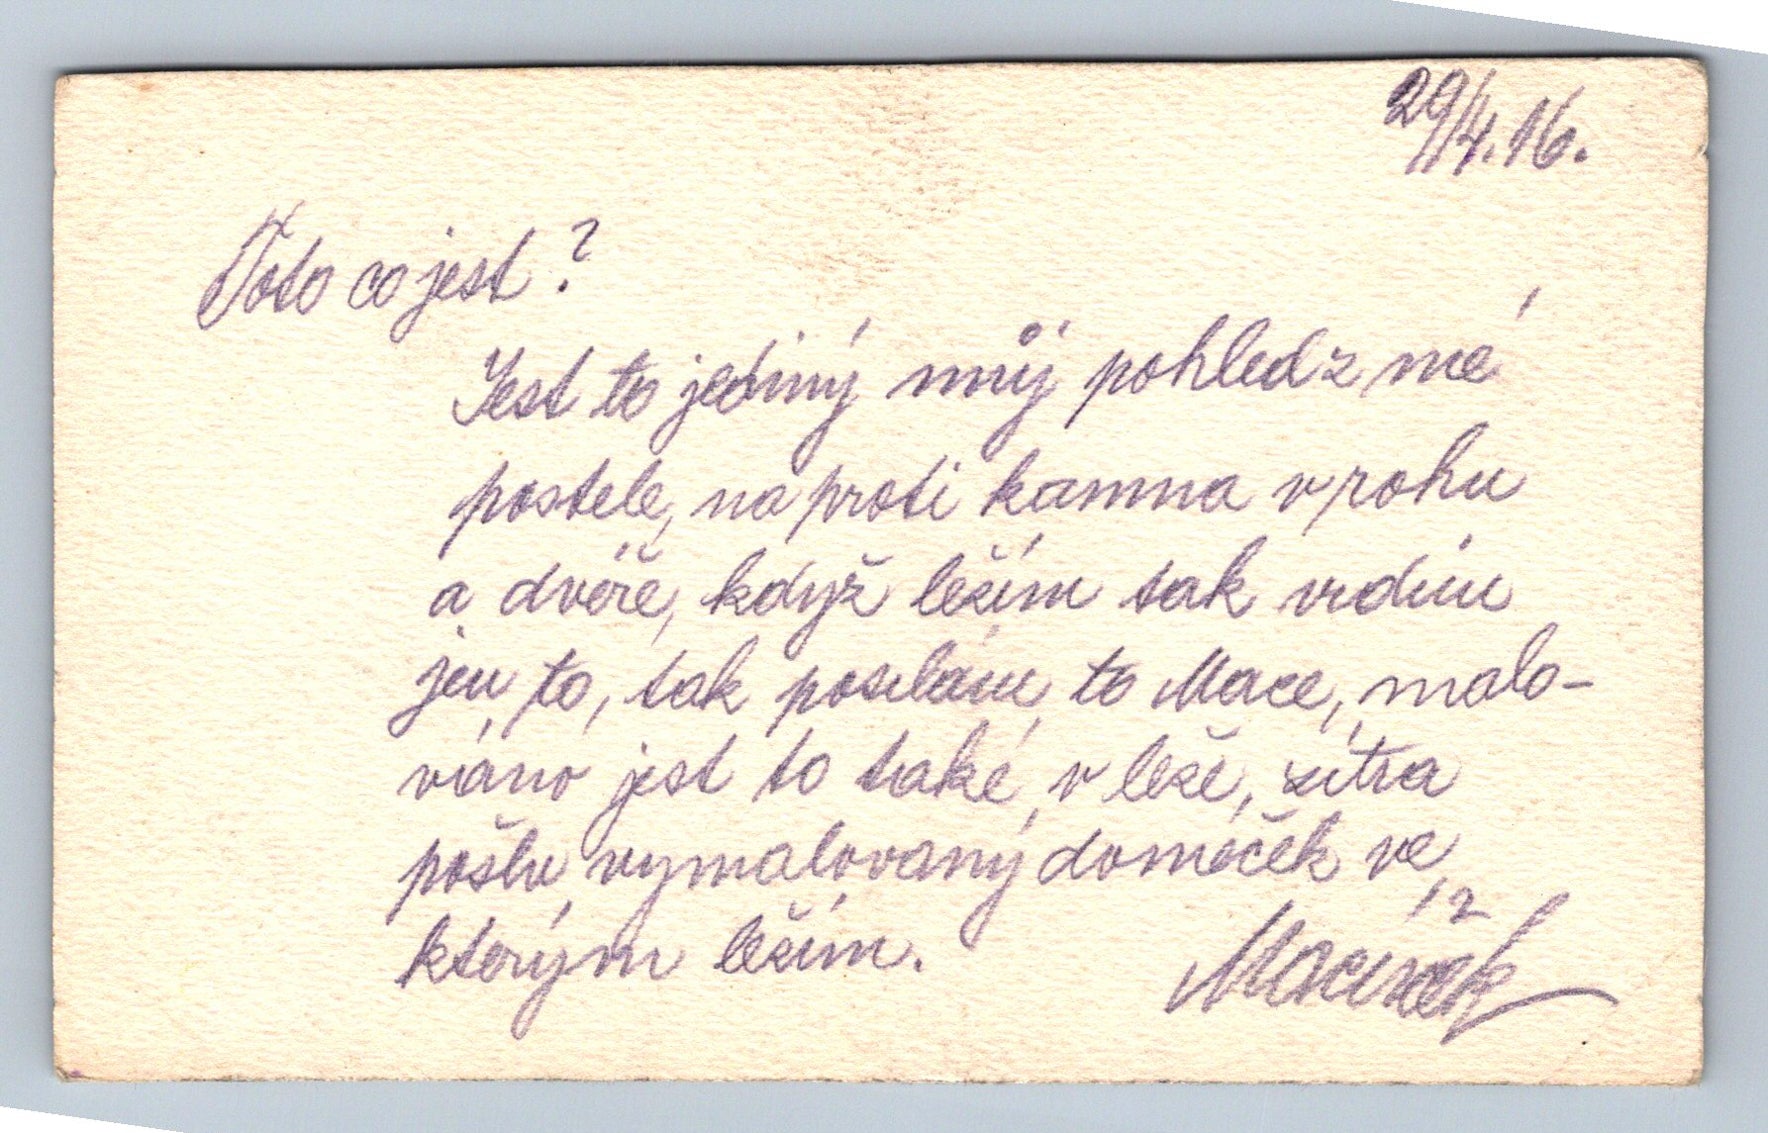 29/4.16.
Toto co jest?
Jest to jediný můj pohled z mé
postele, na proti kamna v rohu
a dvéře, když ležím tak vidím
jen to, tak posílám to Mace, malo-
váno jest to také v leže, zítra
pošlu vymalovaný domeček ve
kterým ležím.